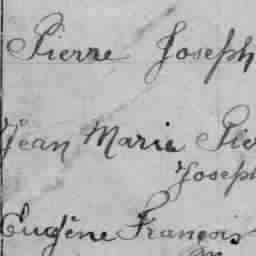 Pierre Joseph
Jean Marie
Joseph
Eugène François